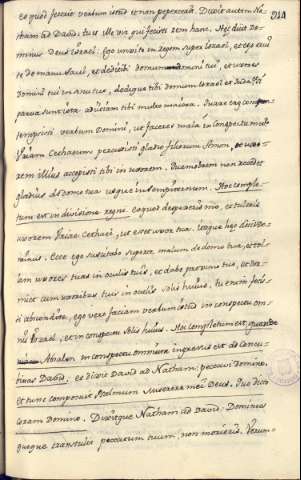 914
eo quod fecerit verbum istud et non pepercerit. Dixit autem Na-
tham ad David: tu es ille vir qui fecisti rem hanc. Hęc dicit do-
minus Deus Israel: Ego unxi te in regem super Israel, et ego erui
te de manu Saul, et dedi tibi domum domini tui, et uxores
domini tui in sinu tuo, dedique tibi domum Israel et Juda. Et si
parva sunt ista adiiciam tibi multo maiora. Quare ergo contem-
psisti verbum Domini, ut faceres mala in conspectu meo
Uriam Cethaeum percussisti gladio filiorum Amon, et uxo-
rem illius accepisti tibi in uxorem. Quamobrem non recedet
gladius de domo tua usque in sempiternum. Hoc comple-
tum est in divisione regni. eo quod despexeris me, et tuleris
uxorem Uriae Cethaei, ut esset uxor tua. Itaque hęc dicit Do-
minus. Ecce ego suscitabo super te malum de domo tua, et tol-
lam uxores tuas in oculis tuis, et dabo proximo tuo, et dor-
miet cum uxoribus tuis in oculis solis huius, tu enim feci-
sti abscondite, ego vero faciam verbum istud in conspectu om-
nis Israel, et in conspectu solis huius. Hoc completum est, quando
Absalon in conspectu omnium ingressus est ad concu-
binas David; et dixit David ad Natham: peccavi domino.
et tunc composuit Psalmum Miserere mei Deus.
coram Domino. Dixitque Natham ad David: Dominus
quoque transtulit peccatum tuum, non morieris. Verun-